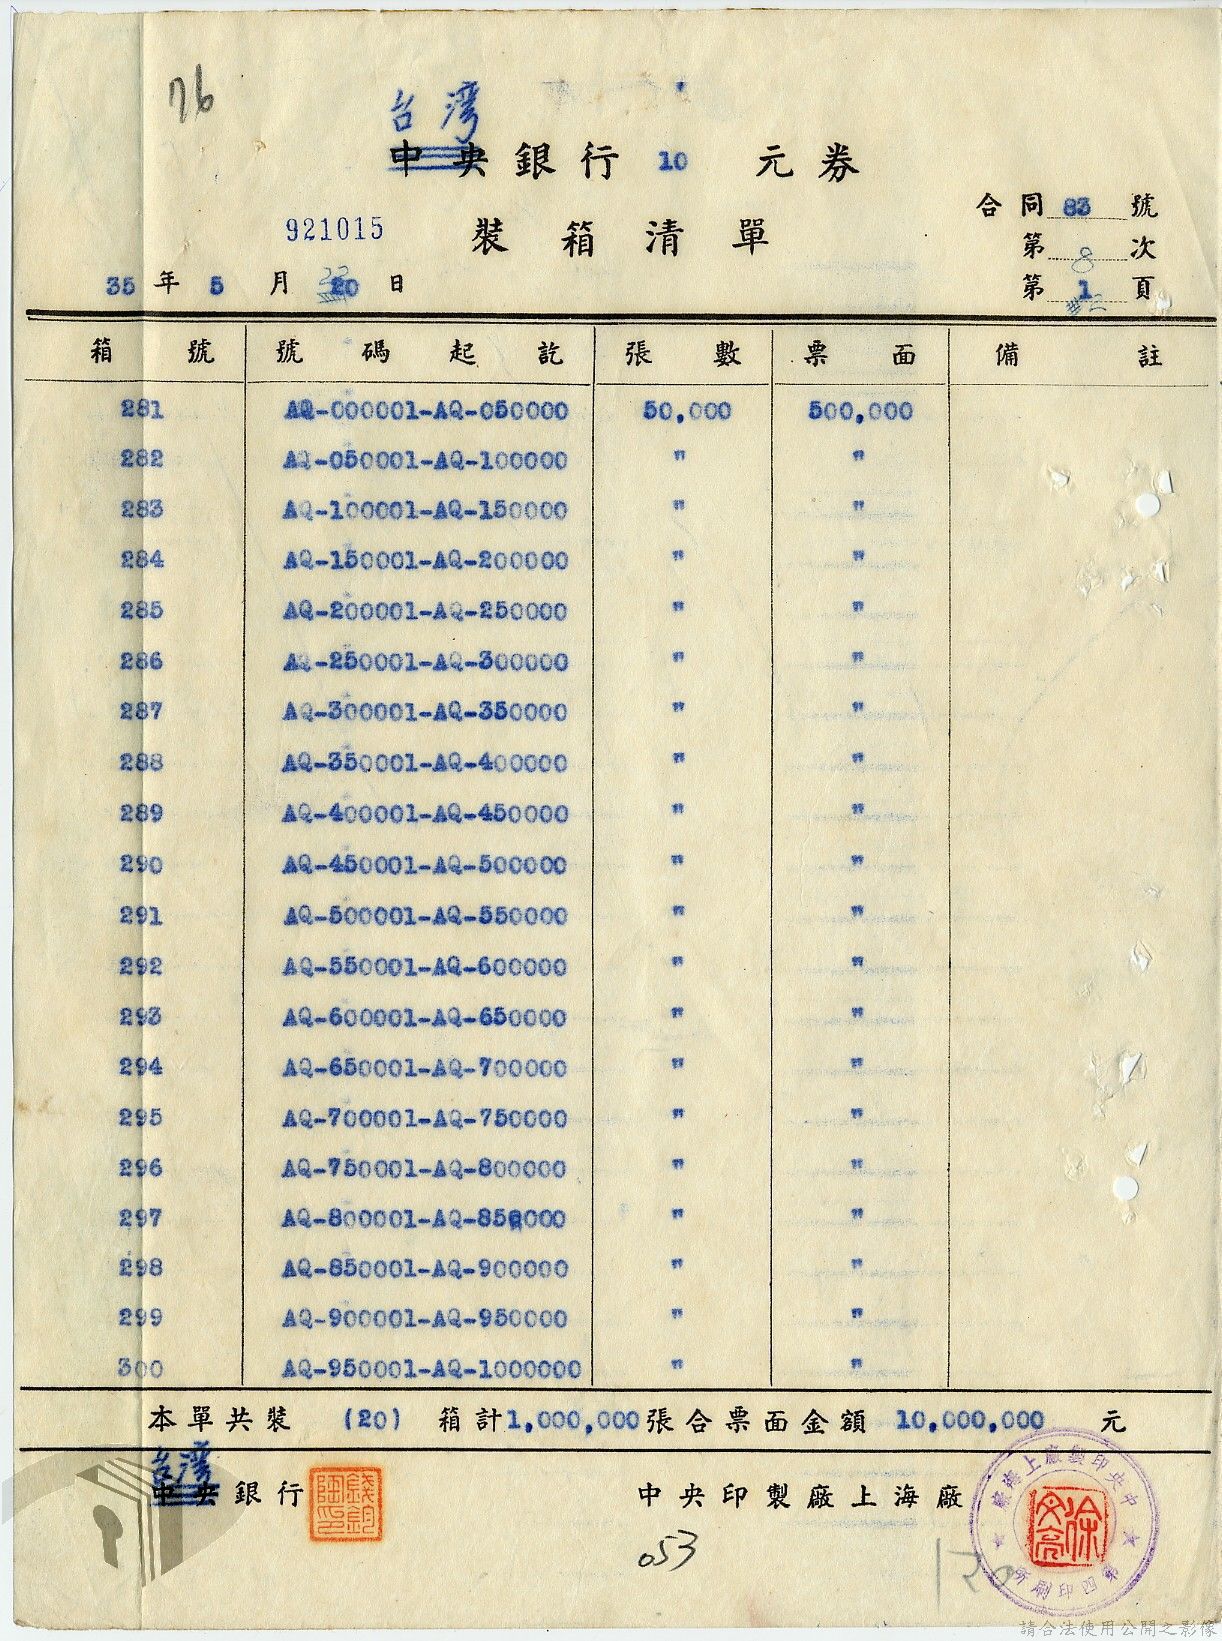 76
台灣
中央銀行 10 元券
合同 83 號
921015 裝箱清單
第 8 次
35 年 5 月 20 日
22
第 1 頁
#2
箱號 號碼起訖 張數 票面 備註
281 AQ-000001-AQ-050000 50,000 500,000
282 AQ-050001-AQ-100000 " "
283 AQ-100001-AQ-150000 " "
284 AQ-150001-AQ-200000 " "
285 AQ-200001-AQ-250000 " "
286 AQ-250001-AQ-300000 " "
287 AQ-300001-AQ-350000 " "
288 AQ-350001-AQ-400000 " "
289 AQ-400001-AQ-450000 " "
290 AQ-450001-AQ-500000 " "
291 AQ-500001-AQ-550000 " "
292 AQ-550001-AQ-600000 " "
293 AQ-600001-AQ-650000 " "
294 AQ-650001-AQ-700000 " "
295 AQ-700001-AQ-750000 " "
296 AQ-750001-AQ-800000 " "
297 AQ-800001-AQ-850000 " "
298 AQ-850001-AQ-900000 " "
299 AQ-900001-AQ-950000 " "
300 AQ-950001-AQ-1000000 " "
本單共裝 (20) 箱計1,000,000張合票面金額 10,000,000 元
台灣
中央銀行
中央印製廠上海廠
053
中央印製廠上海廠
第四印刷所
徐文亮
請合法使用公開之影像